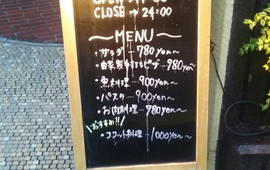 CLOSE → 24:00
〜MENU〜
・サラダ 780yen〜
・自家製手打ちピザ 980yen〜
・魚料理 900yen〜
・パスタ 900yen〜
・お肉料理 980yen〜
おすすめ!!
・ココット料理 1000yen〜